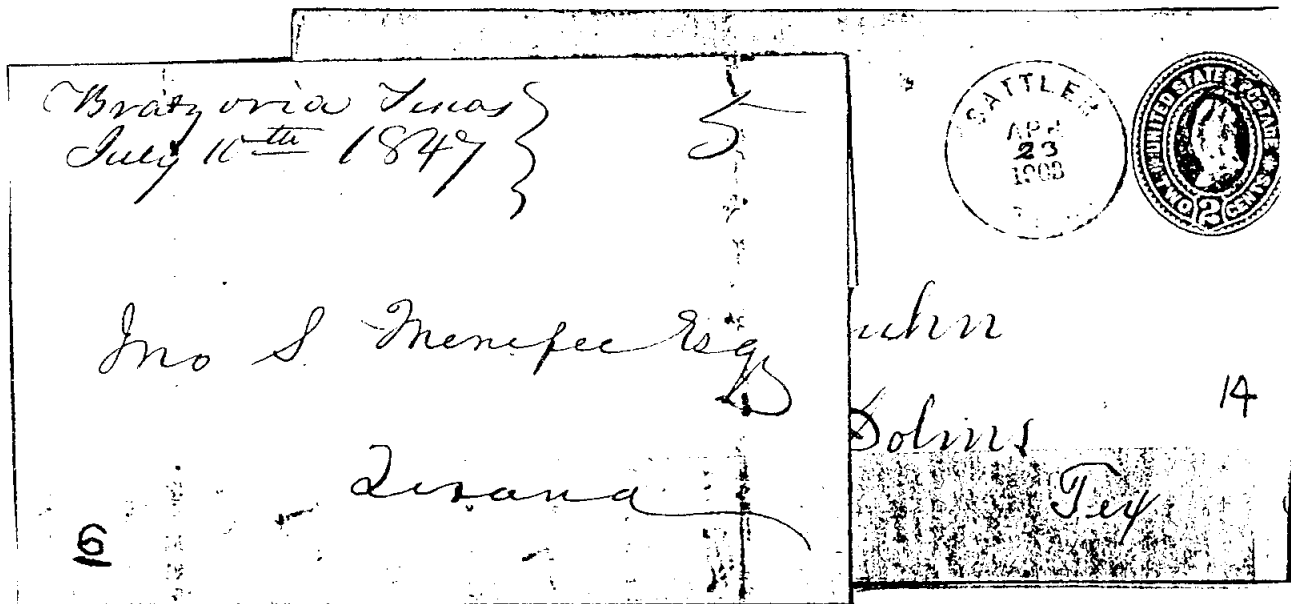 Brazoria Texas
July 10th 1847
5
Jno S Menefee Esq
Texana
6
SATTLER
APR
23
1908
UNITED STATES POSTAGE
TWO 2 CENTS
uhn
Dolms
14
Tex